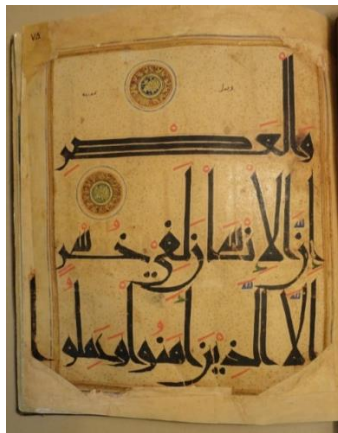 وَالْعَصْرِ
إِنَّ الْإِنْسَانَ لَفِي خُسْرٍ
إِلَّا الَّذِينَ آمَنُوا وَعَمِلُوا ا